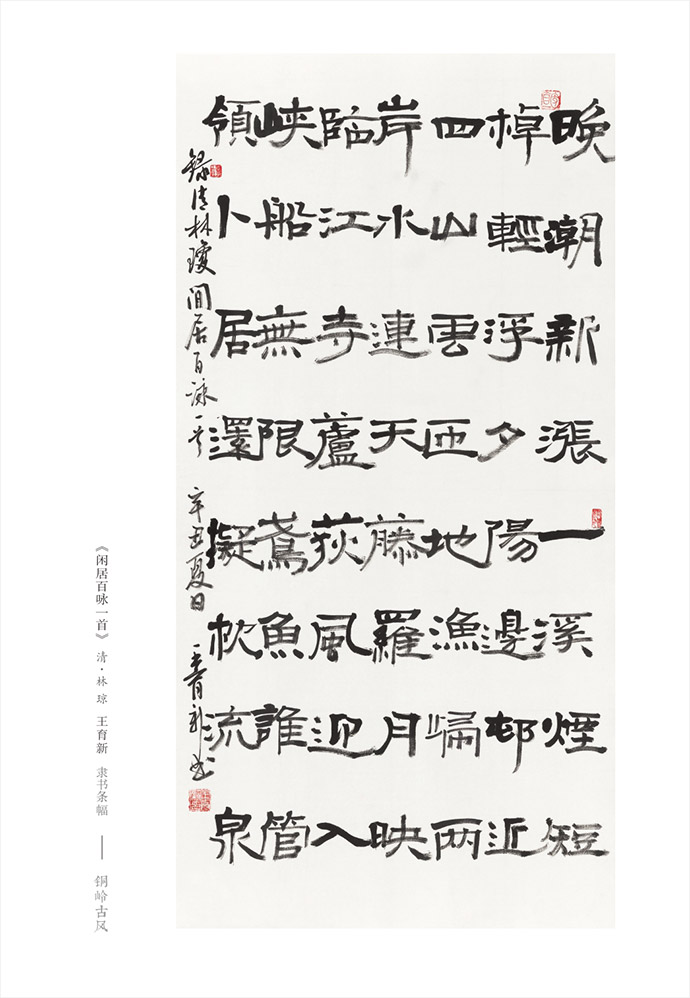 晚潮新漲一溪煙短
棹輕浮夕陽邊邨近
四山雲匝地漁歸两
岸水連天藤羅月映
臨江寺蘆荻風迎入
峽船無限鳶魚誰管
領卜居還擬枕流泉
録清林瓊閒居百詠一首 辛丑夏日 王育新書
《闲居百咏一首》 清·林琼 王育新 隶书条幅 —— 铜岭古风